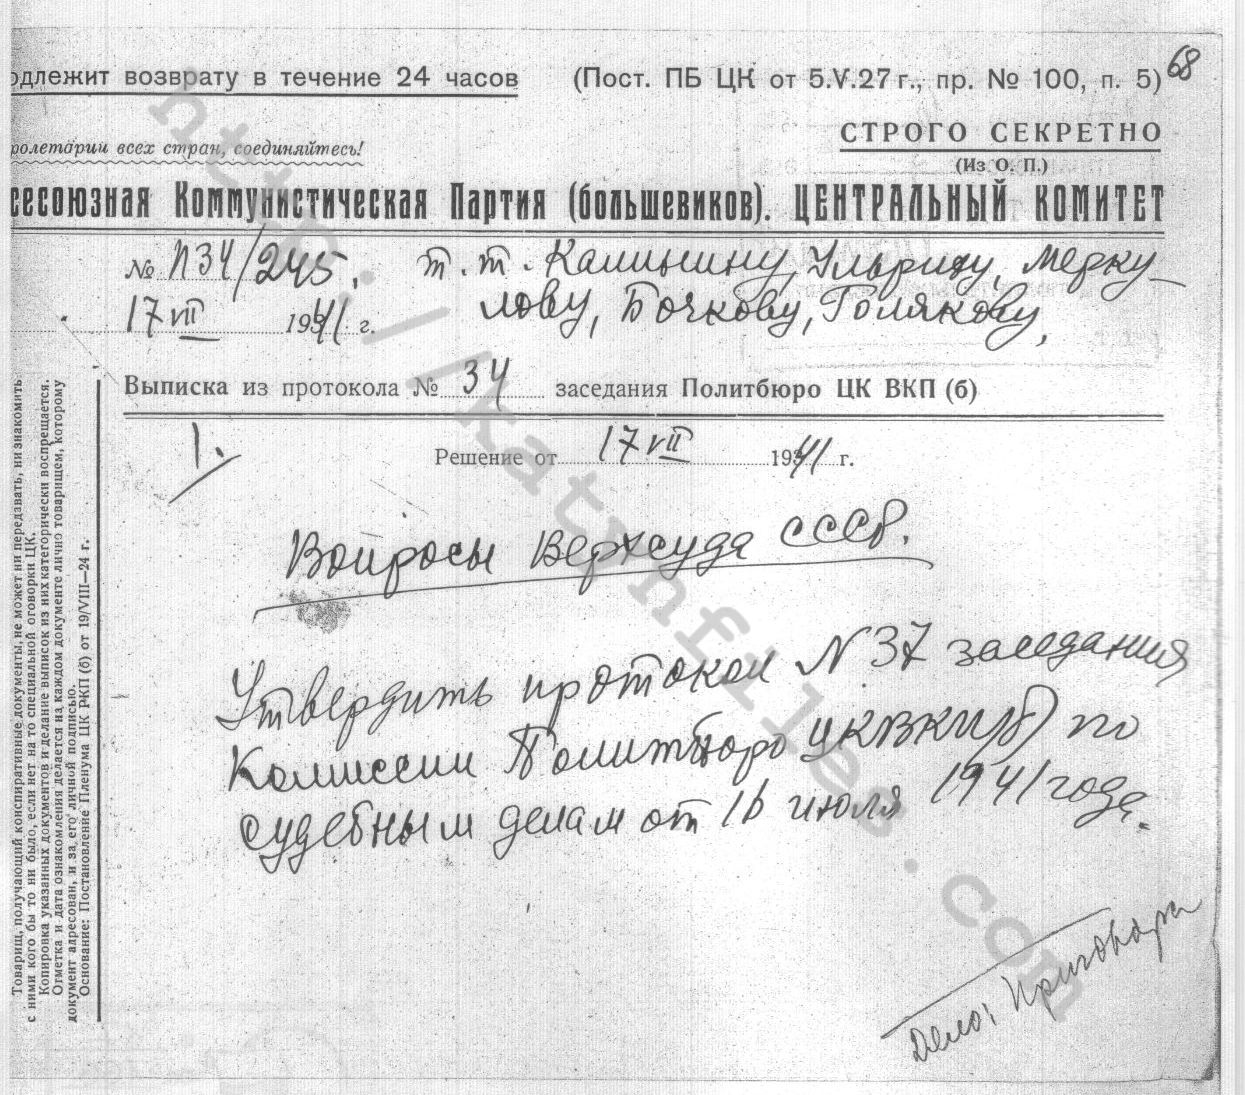 одлежит возврату в течение 24 часов (Пост. ПБ ЦК от 5.V.27 г., пр. № 100, п. 5) 68
ролетарии всех стран, соединяйтесь!
СТРОГО СЕКРЕТНО
(Из О. П.)
сесоюзная Коммунистическая Партия (большевиков). ЦЕНТРАЛЬНЫЙ КОМИТЕТ
№ П34/245. т.т. Калинину, Ульриху, Мерку-
17 VII 1941 г. лову, Бочкову, Голякову,
Выписка из протокола № 34 заседания Политбюро ЦК ВКП (б)
1.
Решение от 17 VII 1941 г.
Вопросы Верхсуда СССР.
Утвердить протокол N 37 заседания
Комиссии Политбюро ЦКВКП(б) по
судебным делам от 16 июля 1941 года.
Дело: Приговора
Товарищ, получающий конспиративные документы, не может ни передавать, ни знакомить
с ними кого бы то ни было, если нет на то специальной оговорки ЦК.
Копировка указанных документов и делание выписок из них категорически воспрещается.
Отметка и дата ознакомления делается на каждом документе лично товарищем, которому
документ адресован, и за его личной подписью.
Основание: Постановление Пленума ЦК РКП (б) от 19/VIII—24 г.
http://katynfiles.com